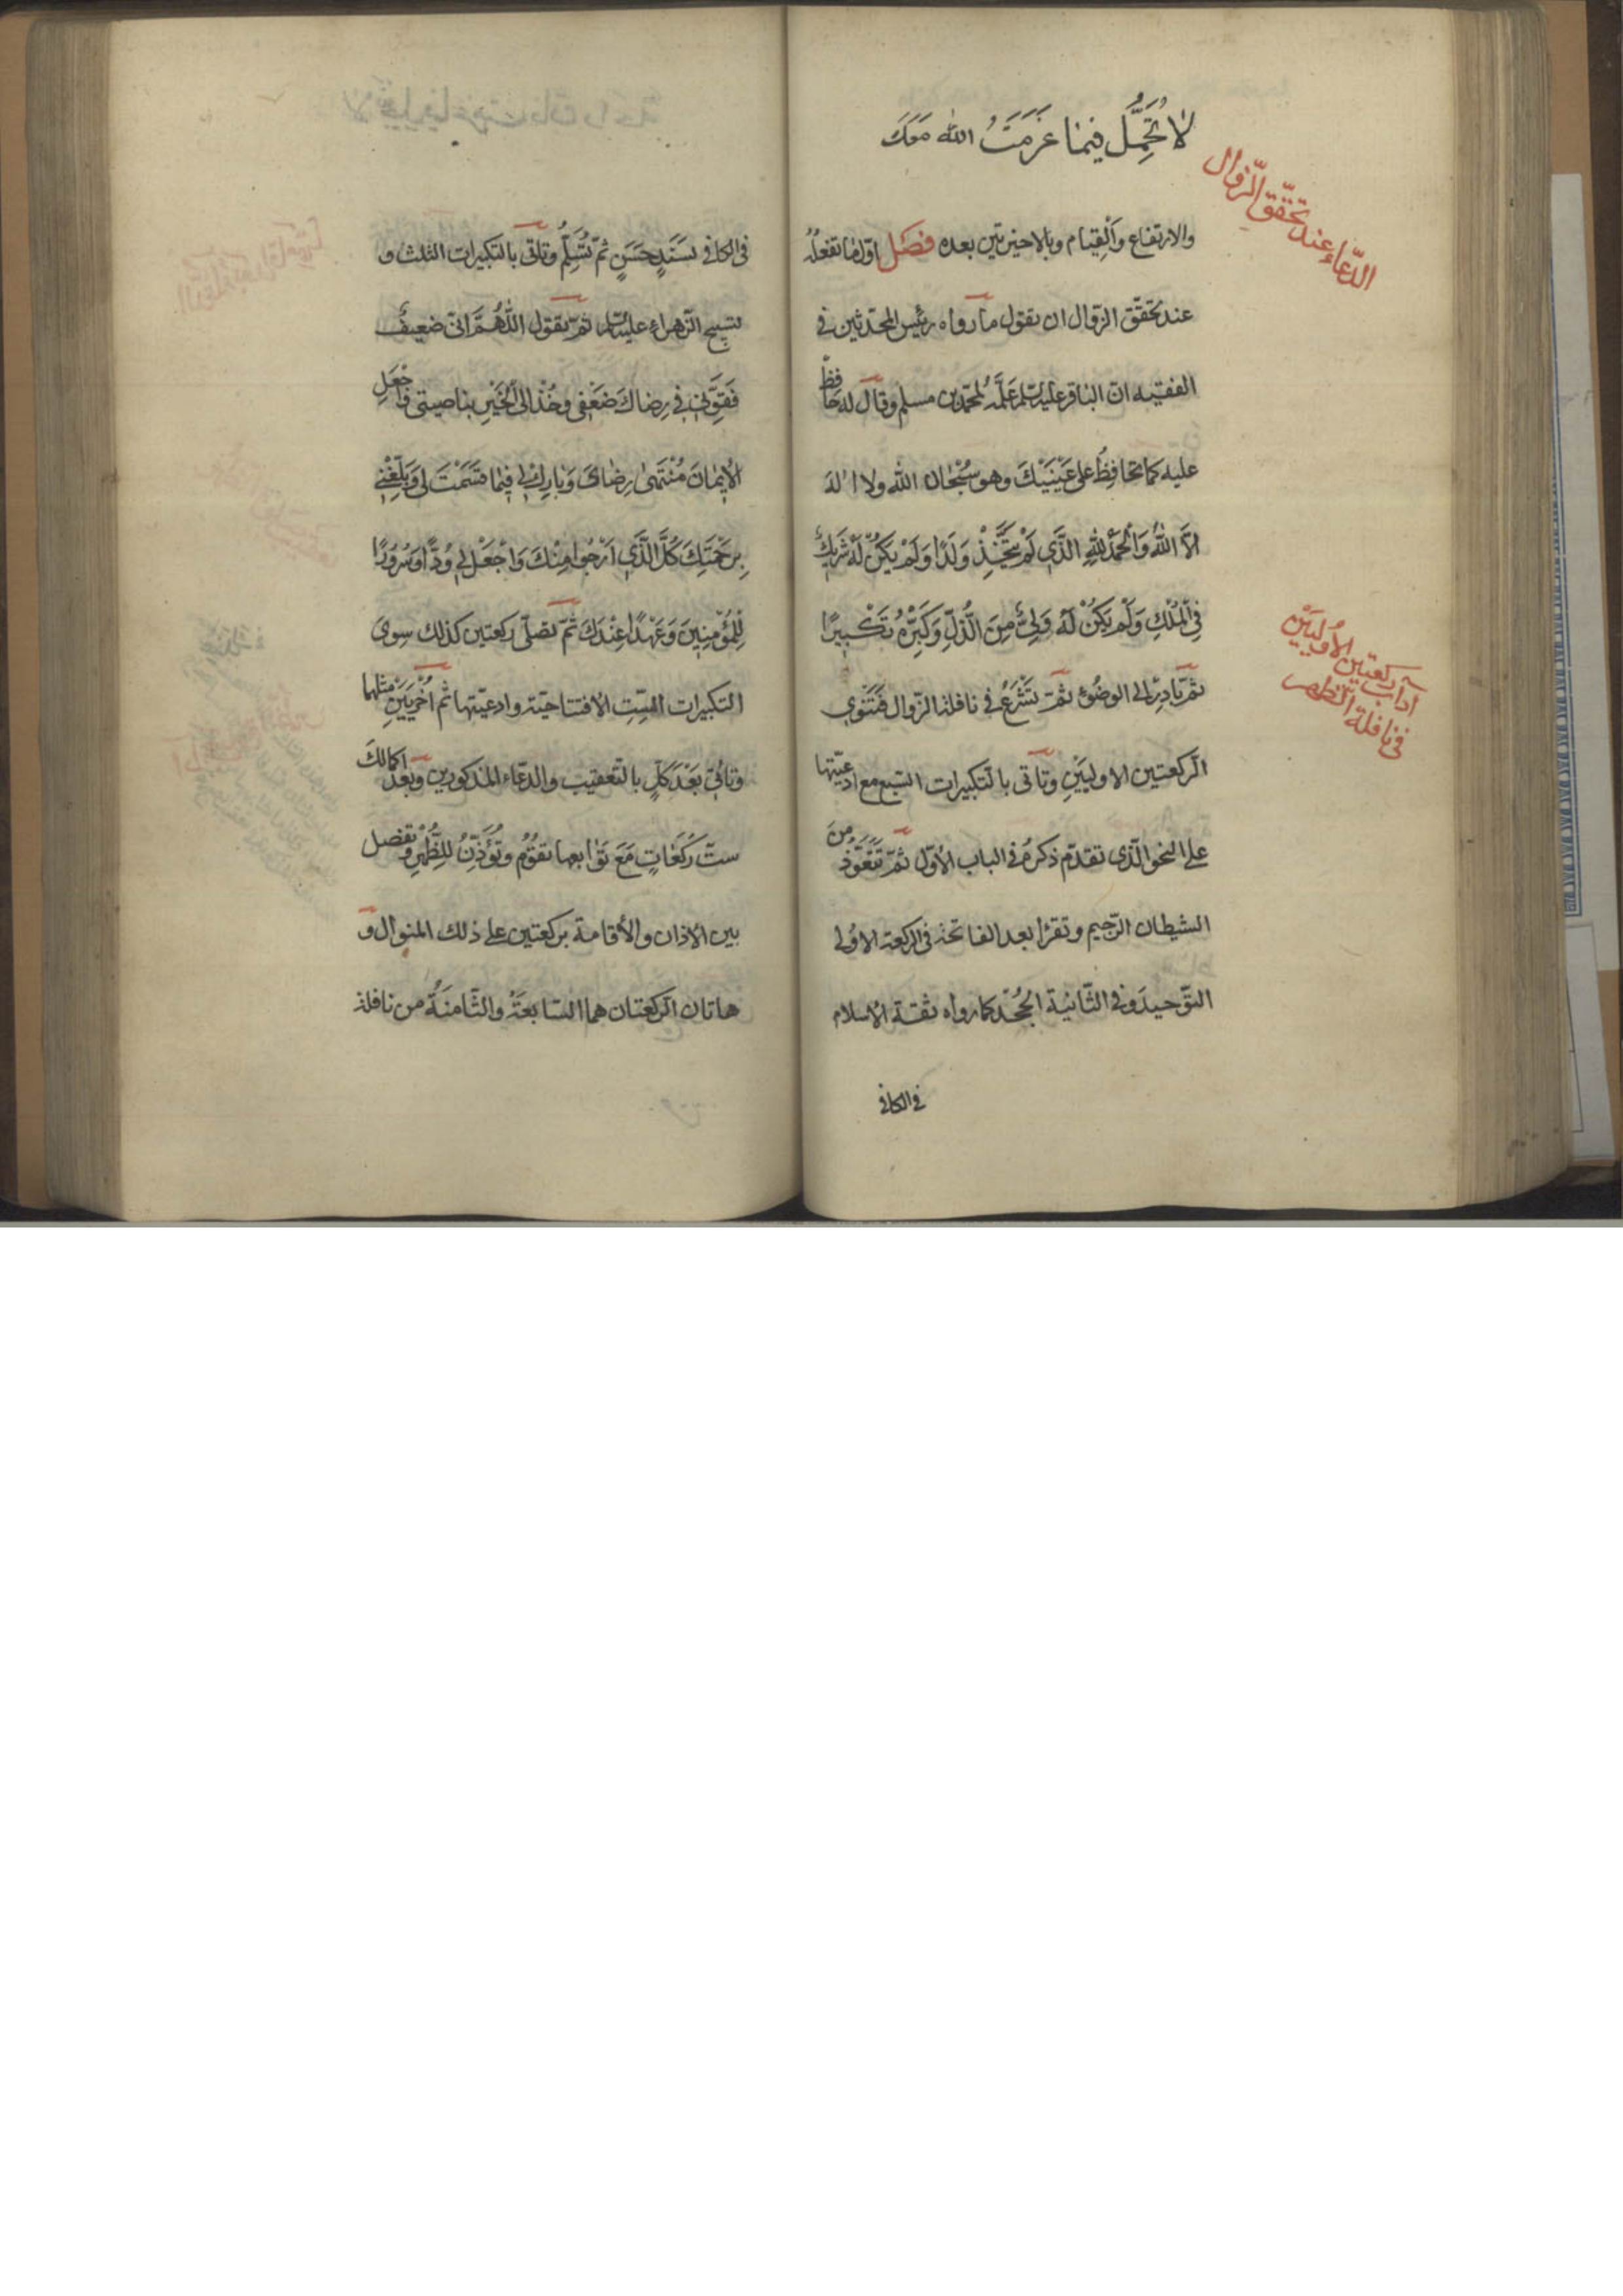 لا تُجَمِّل فيما عَزَمَتَ الله مَعَكَ
الدّعاء عند تحقّق الزّوال
والارتفاع وَالْقِيام وبالاخيرتين بعده فصل اوّل ما تفعله
عند تحقّق الزوال ان تقول ما رواه رئيس المحدّثين فى
الفقيه انّ الباقر عليه السلام عَلَّمَه لمحمّد بن مسلم وقال له حافظ
عليه كما تحافِظُ على عَيْنَيْكَ وهو سُبْحانَ الله ولا اله
الاَّ اللهُ وَالْحَمْدُ للهِ الَّذي لَمْ يَتَّخِذْ وَلَدًا وَلَمْ يَكُنْ لَهُ شَريكٌ
فِي الْمُلْكِ وَلَمْ يَكُنْ لَهُ وَلِيٌّ مِنَ الذُّلِّ وَكَبِّرْهُ تَكْبيرًا
ثمّ بادِرْ الى الوضُوءِ ثمّ تَشْرَعُ فى نافلة الزّوال فَتَنْوي
آداب ركعتين الأُوليَيْن
فى نافلة الظهر
الرّكعتين الاوليَيْنِ وتأتى بالتّكبيرات السّبع مع ادعيّتها
على النحو الّذى تقدّم ذكرهُ فى الباب الأوّل ثمّ تَتَعَوَّذُ مِنَ
الشيطان الرّجيم وتقرأ بعد الفاتحة فى الركعة الاولى
التّوحيدَ وفى الثّانية الجُحْد كما رواه ثقة الاسلام
فى الكافى
فى الكافى بسَنَدٍ حَسَنٍ ثمّ تُسَلِّمُ وتاتى بالتكبيرات الثلث و
تسبيح الزّهراء عليها السلام ثمّ تقول اللّهُمَّ انّى ضعيفٌ
فَقَوِّني في رِضاكَ ضَعْفى وخُذْ الىَ الْخَيْرِ بناصيتى وَاجْعَلِ
الْايمانَ مُنْتَهىٰ رِضاىَ وَبارِكْ لى فيما قَسَمْتَ لى وَبَلِّغْني
بِرَحْمَتِكَ كُلَّ الَّذي اَرْجُوا مِنْكَ وَاجْعَلْ لي وُدًّا وسُرُورًا
لِلْمُؤْمِنينَ وَعَهْدًا عِنْدَكَ ثمّ تصلّى ركعتين كذلك سِوى
التكبيرات السِّت الافتتاحيّة وادعيّتها ثم اُخْرَيَيْنِ مثلهما
وتأتي بَعْدَ كلٍّ بالتّعقيب والدّعاء المذكورين وبَعْدَ اكمالكَ
ستّ رَكَعاتٍ مَعَ تَوابعها تقُومُ وتُؤَذِّنُ للِظُّهْرِ وتفصل
بين الأذان والأقامة بركعتين على ذلك المنوال و
هاتان الرّكعتان هما السّابعَةُ والثّامنَةُ من نافلة